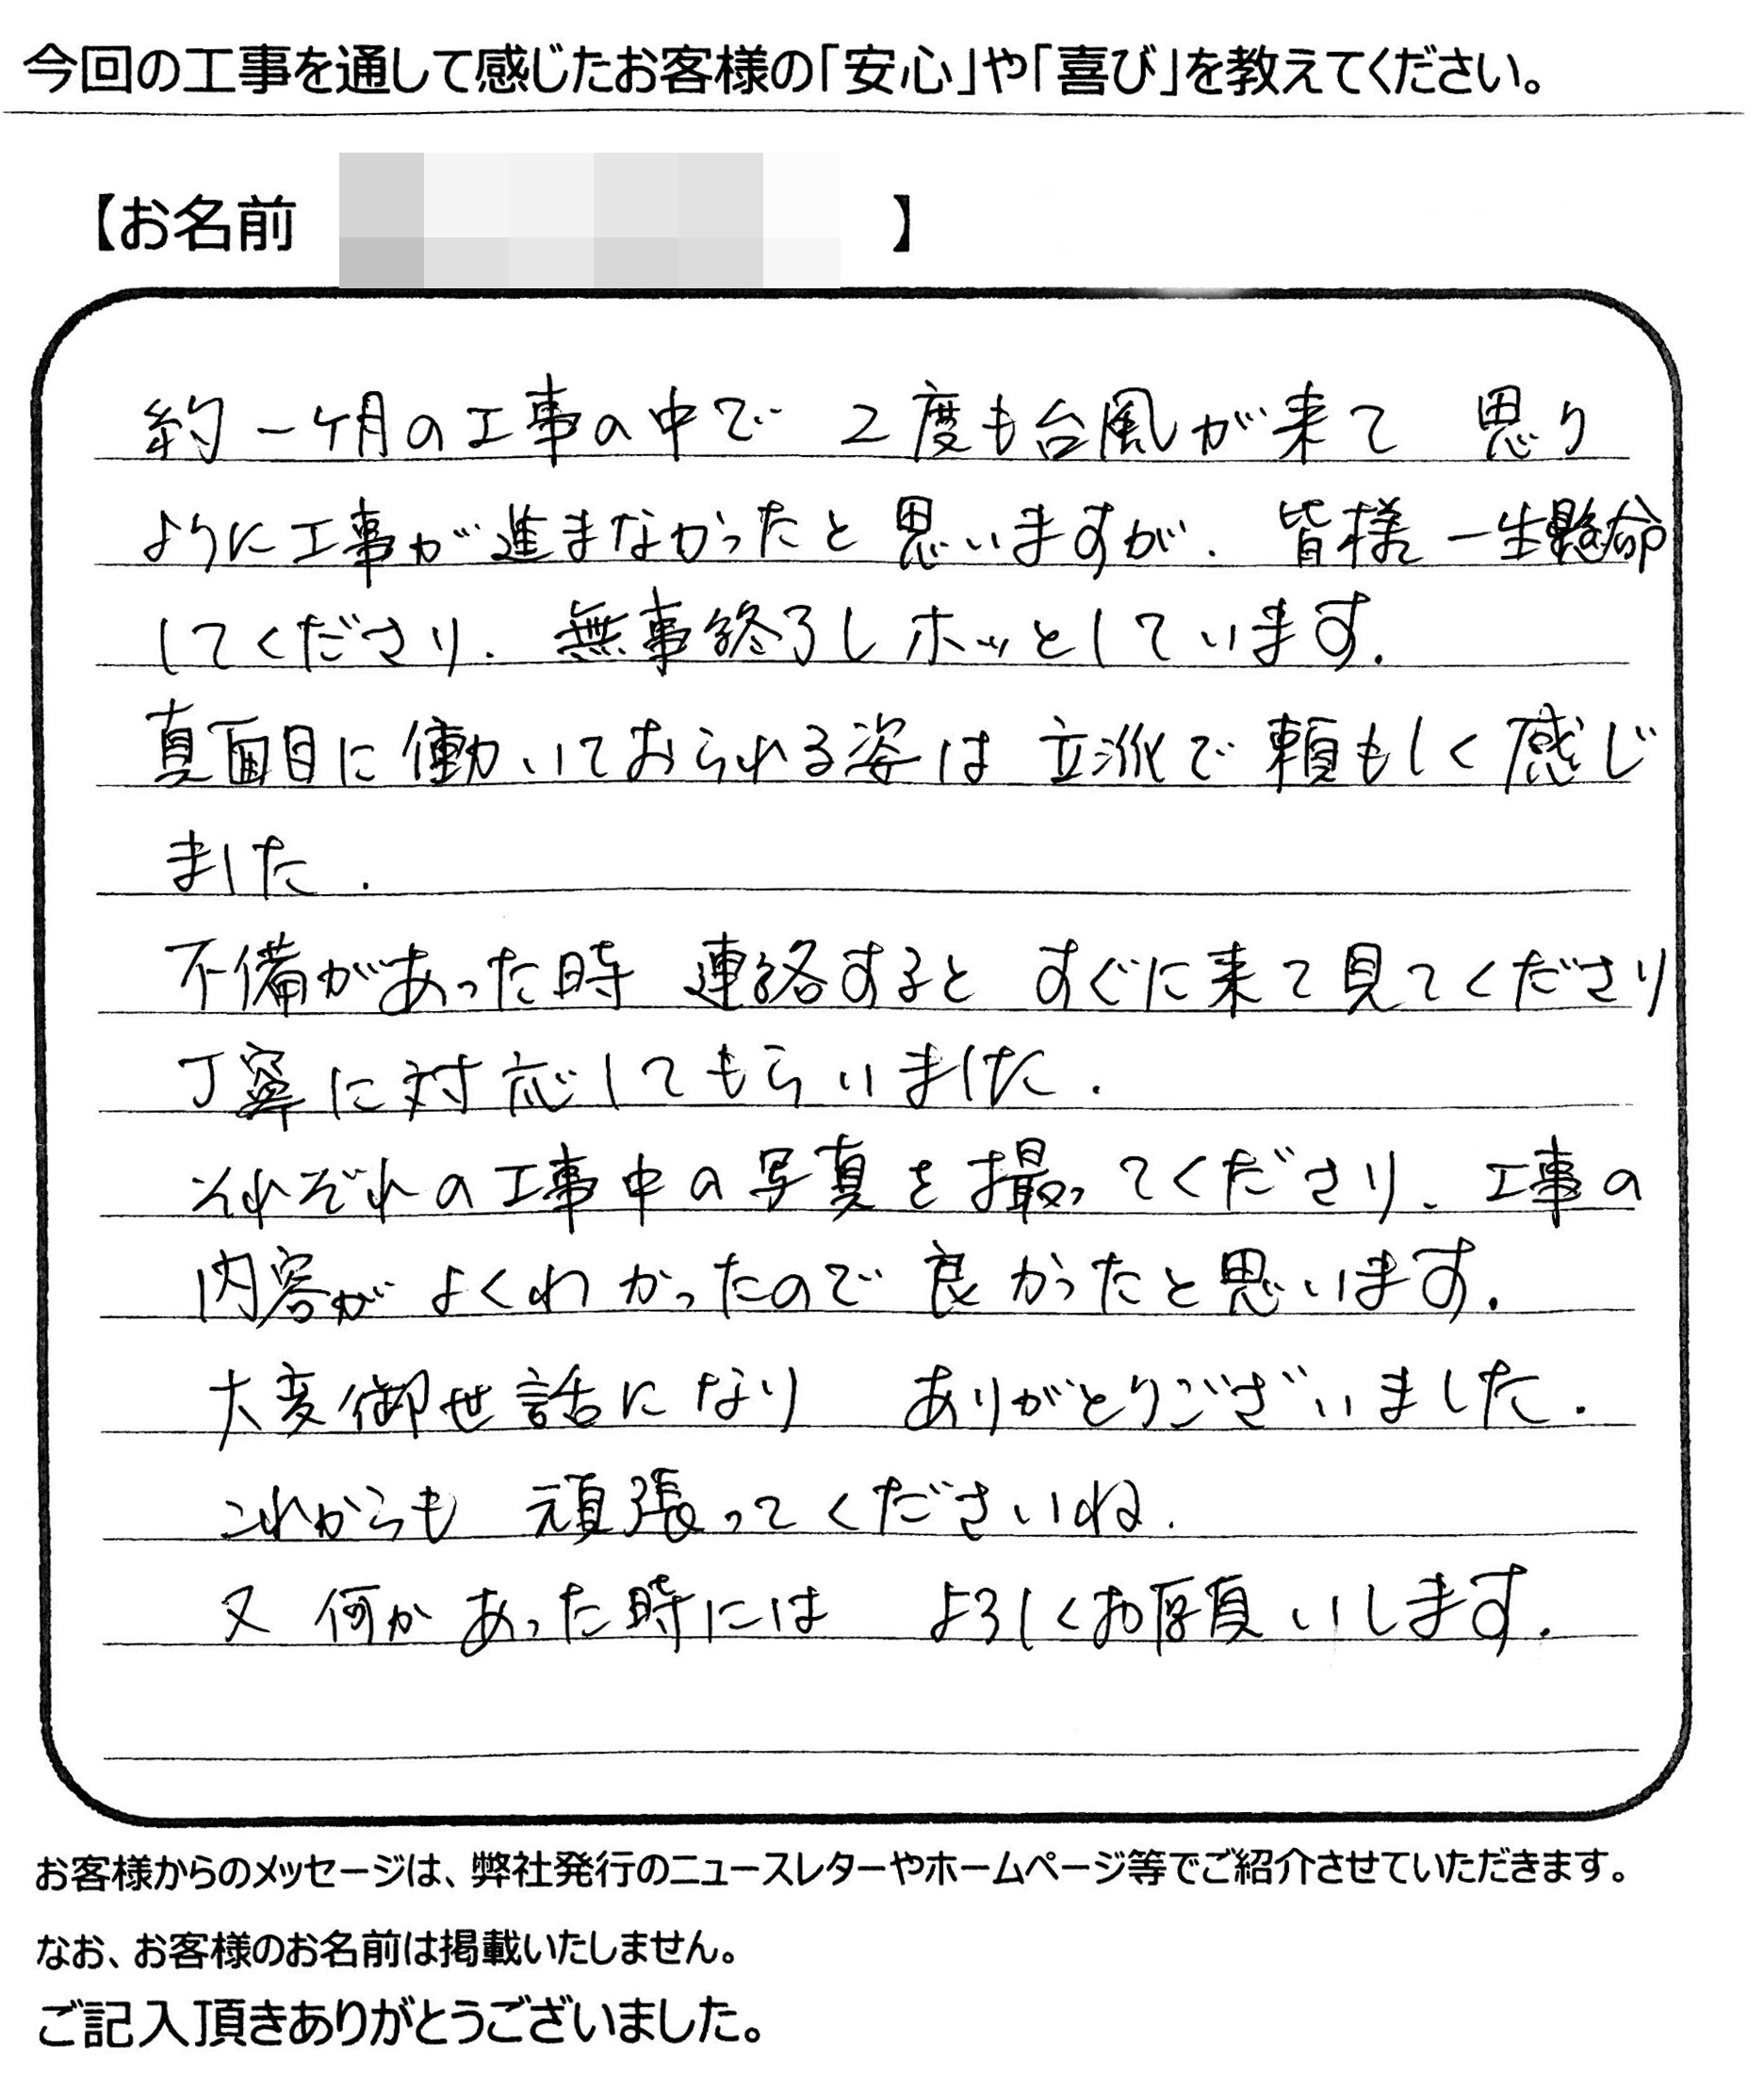 今回の工事を通して感じたお客様の「安心」や「喜び」を教えてください。
【お名前　】
約一ヶ月の工事の中で 2度も台風が来て 思う
ように工事が進まなかったと思いますが、皆様一生懸命
してくださり、無事終了しホッとしています。
真面目に働いておられる姿は 立派で頼もしく感じ
ました。
不備があった時 連絡すると すぐに来て見てくださり
丁寧に対応してもらいました。
それぞれの工事中の写真を撮ってくださり、工事の
内容がよくわかったので良かったと思います。
大変御世話になり ありがとうございました。
これからも 頑張ってくださいね。
又 何かあった時には よろしくお願いします。
お客様からのメッセージは、弊社発行のニュースレターやホームページ等でご紹介させていただきます。
なお、お客様のお名前は掲載いたしません。
ご記入頂きありがとうございました。